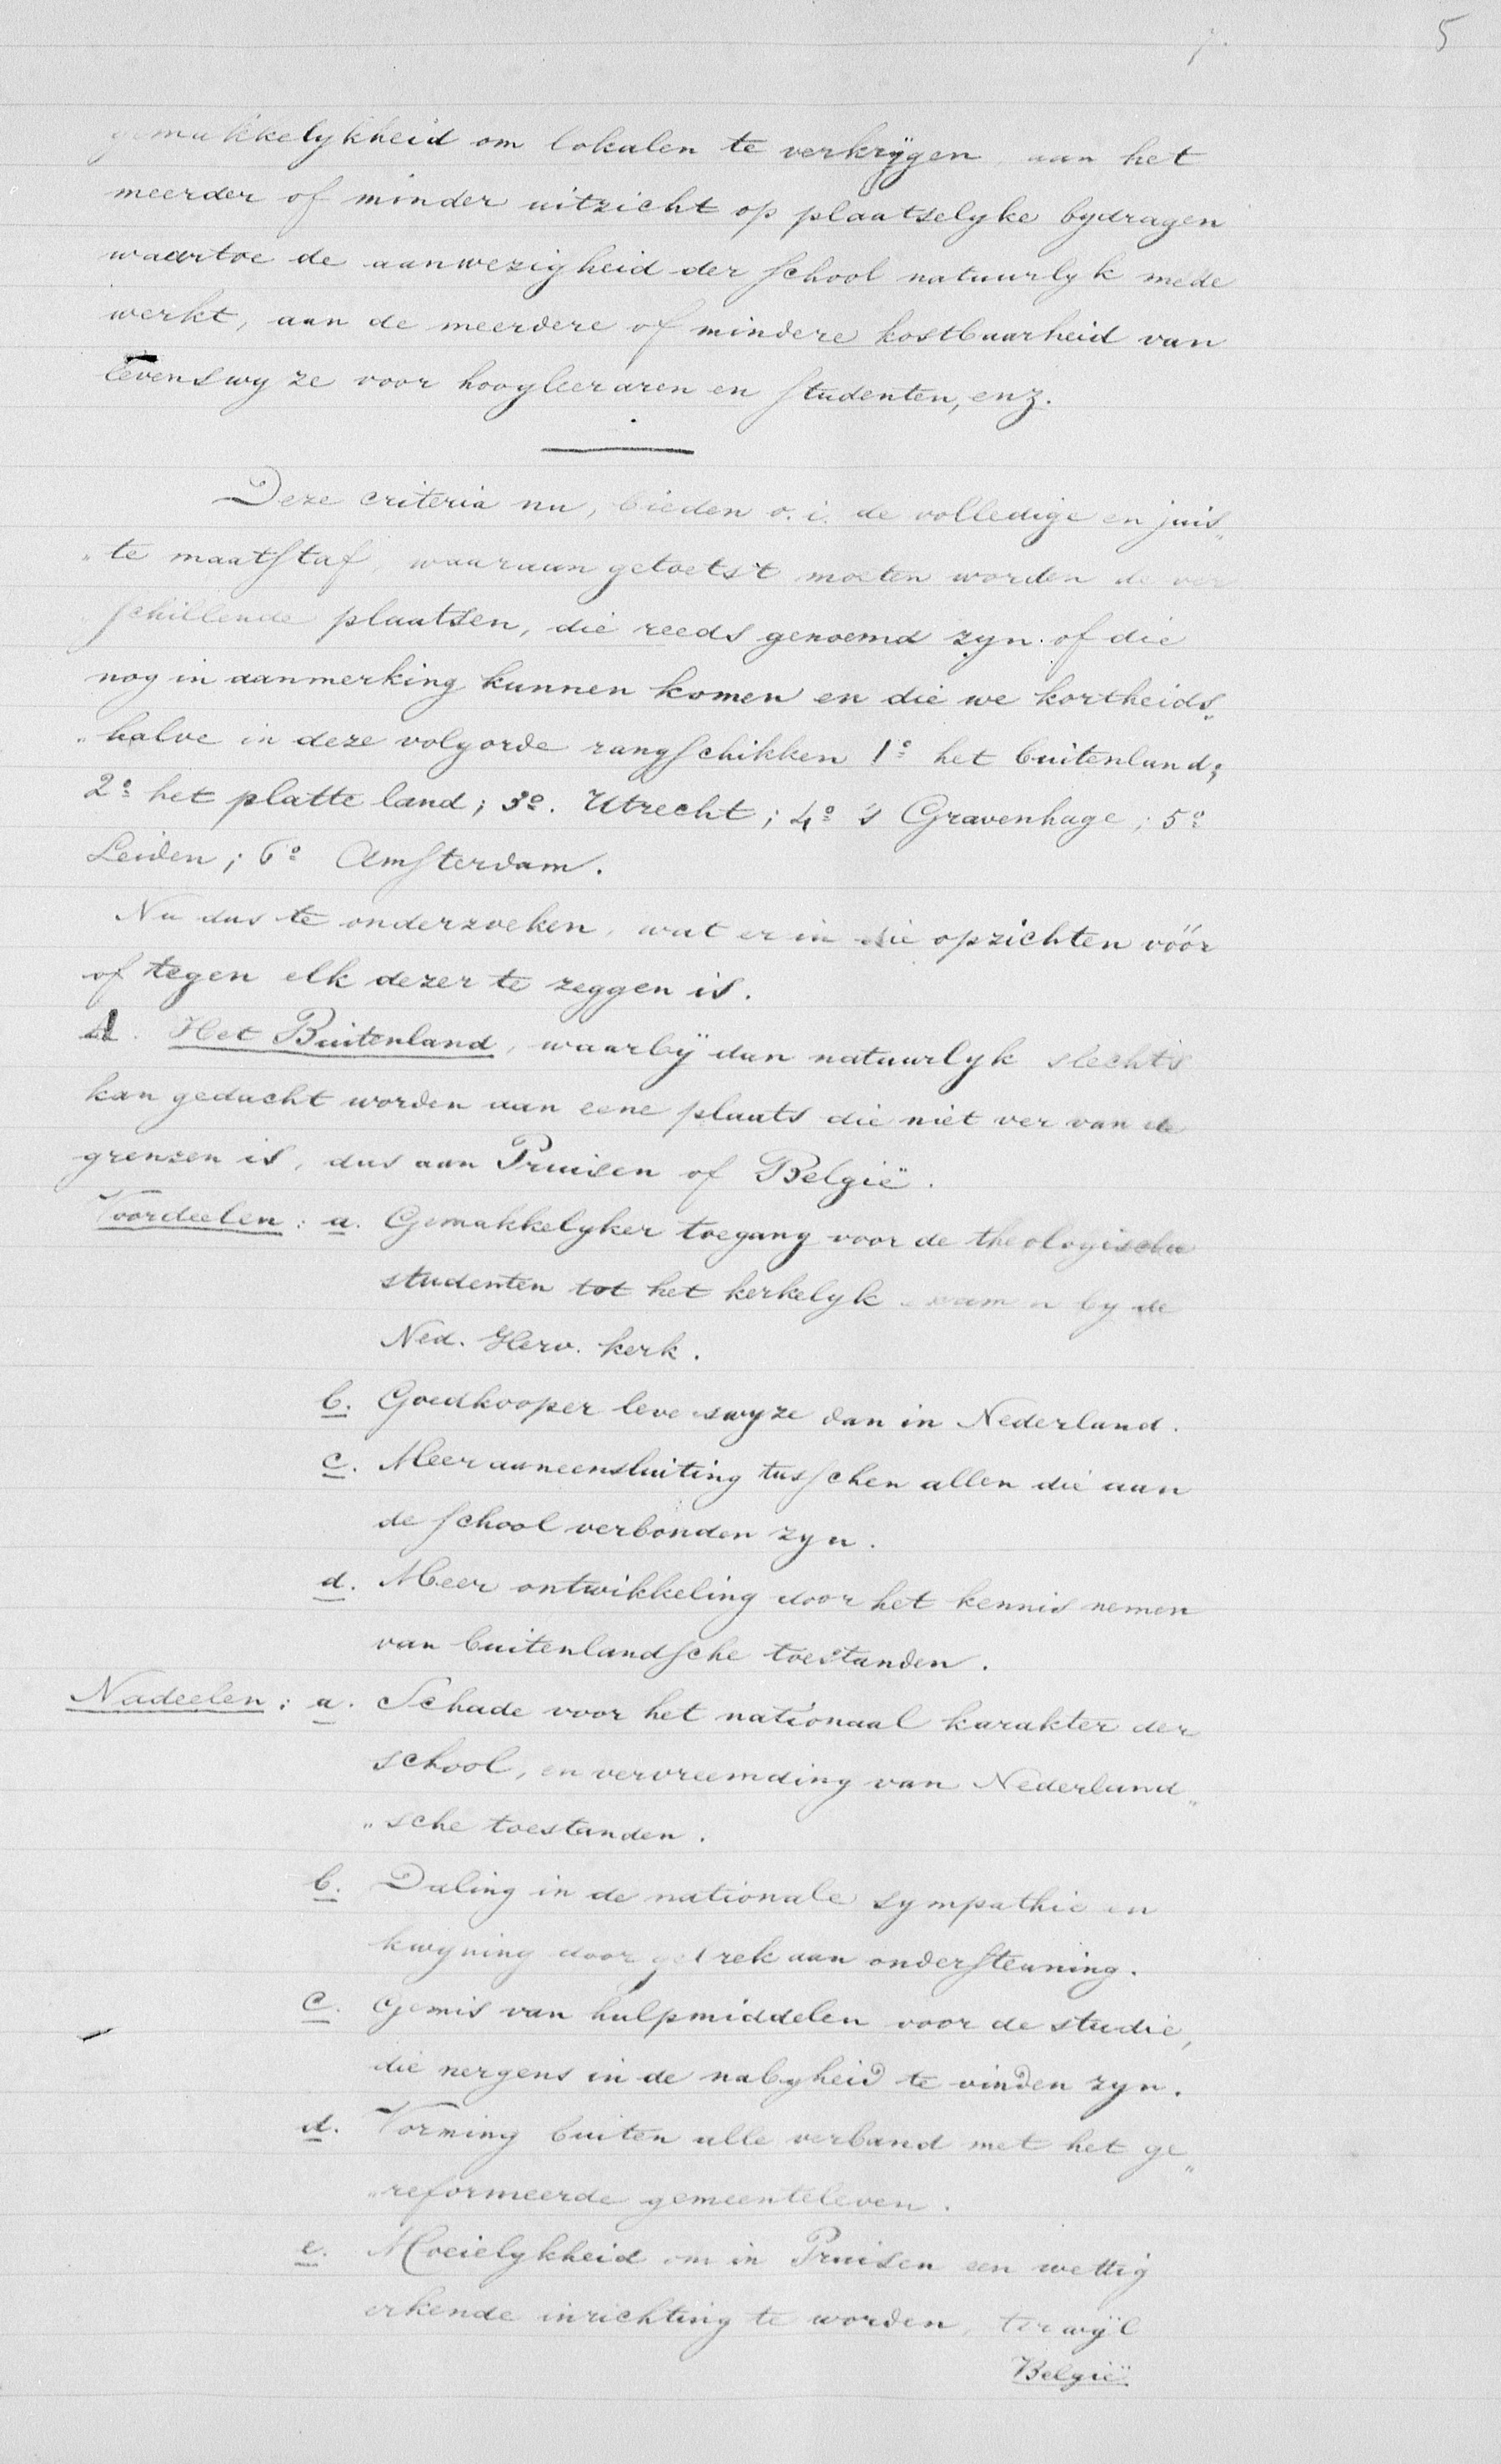 5
gemakkelykheid om lokalen te verkrÿgen, aan het
meerder of minder uitzicht op plaatselyke bydragen
waartoe de aanwezigheid der school natuurlyk mede
werkt, aan de meerdere of mindere kostbaarheid van
levenswyze voor hoogleeraren en studenten, enz.
Deze criteria nu, bieden o. i. de volledige en juis„
„te maatstaf, waaraan getoetst moeten worden de ver
schillende plaatsen, die reeds genoemd zyn of die
nog in aanmerking kunnen komen en die we kortheids„
„halve in deze volgorde rangschikken 1º het buitenland;
2º het platte land; 3º. Utrecht; 4º 's Gravenhage; 5º
Leiden; 6º Amsterdam.
Nu dus te onderzoeken, wat er in die opzichten vóór
of tegen elk dezer te zeggen is.
A. Het Buitenland, waarbÿ dan natuurlyk slechts
kan gedacht worden aan eene plaats die niet ver van de
grenzen is, dus aan Pruisen of België.
Voordeelen: a. Gemakkelyker toegang voor de theologische
studenten tot het kerkelyk examen by de
Ned. Herv. kerk.
b. Goedkooper levenswyze dan in Nederland.
c. Meer aaneensluiting tusschen allen die aan
de school verbonden zyn.
d. Meer ontwikkeling door het kennis nemen
van buitenlandsche toestanden.
Nadeelen: a. Schade voor het nationaal karakter der
school, en vervreemding van Nederland„
„sche toestanden.
b. Daling in de nationale sympathie en
kwyning door gebrek aan ondersteuning.
c. Gemis van hulpmiddelen voor de studie,
die nergens in de nabyheid te vinden zyn.
d. Vorming buiten alle verband met het ge„
„reformeerde gemeenteleven.
e. Moeielykheid om in Pruisen een wettig
erkende inrichting te worden, terwÿl
België